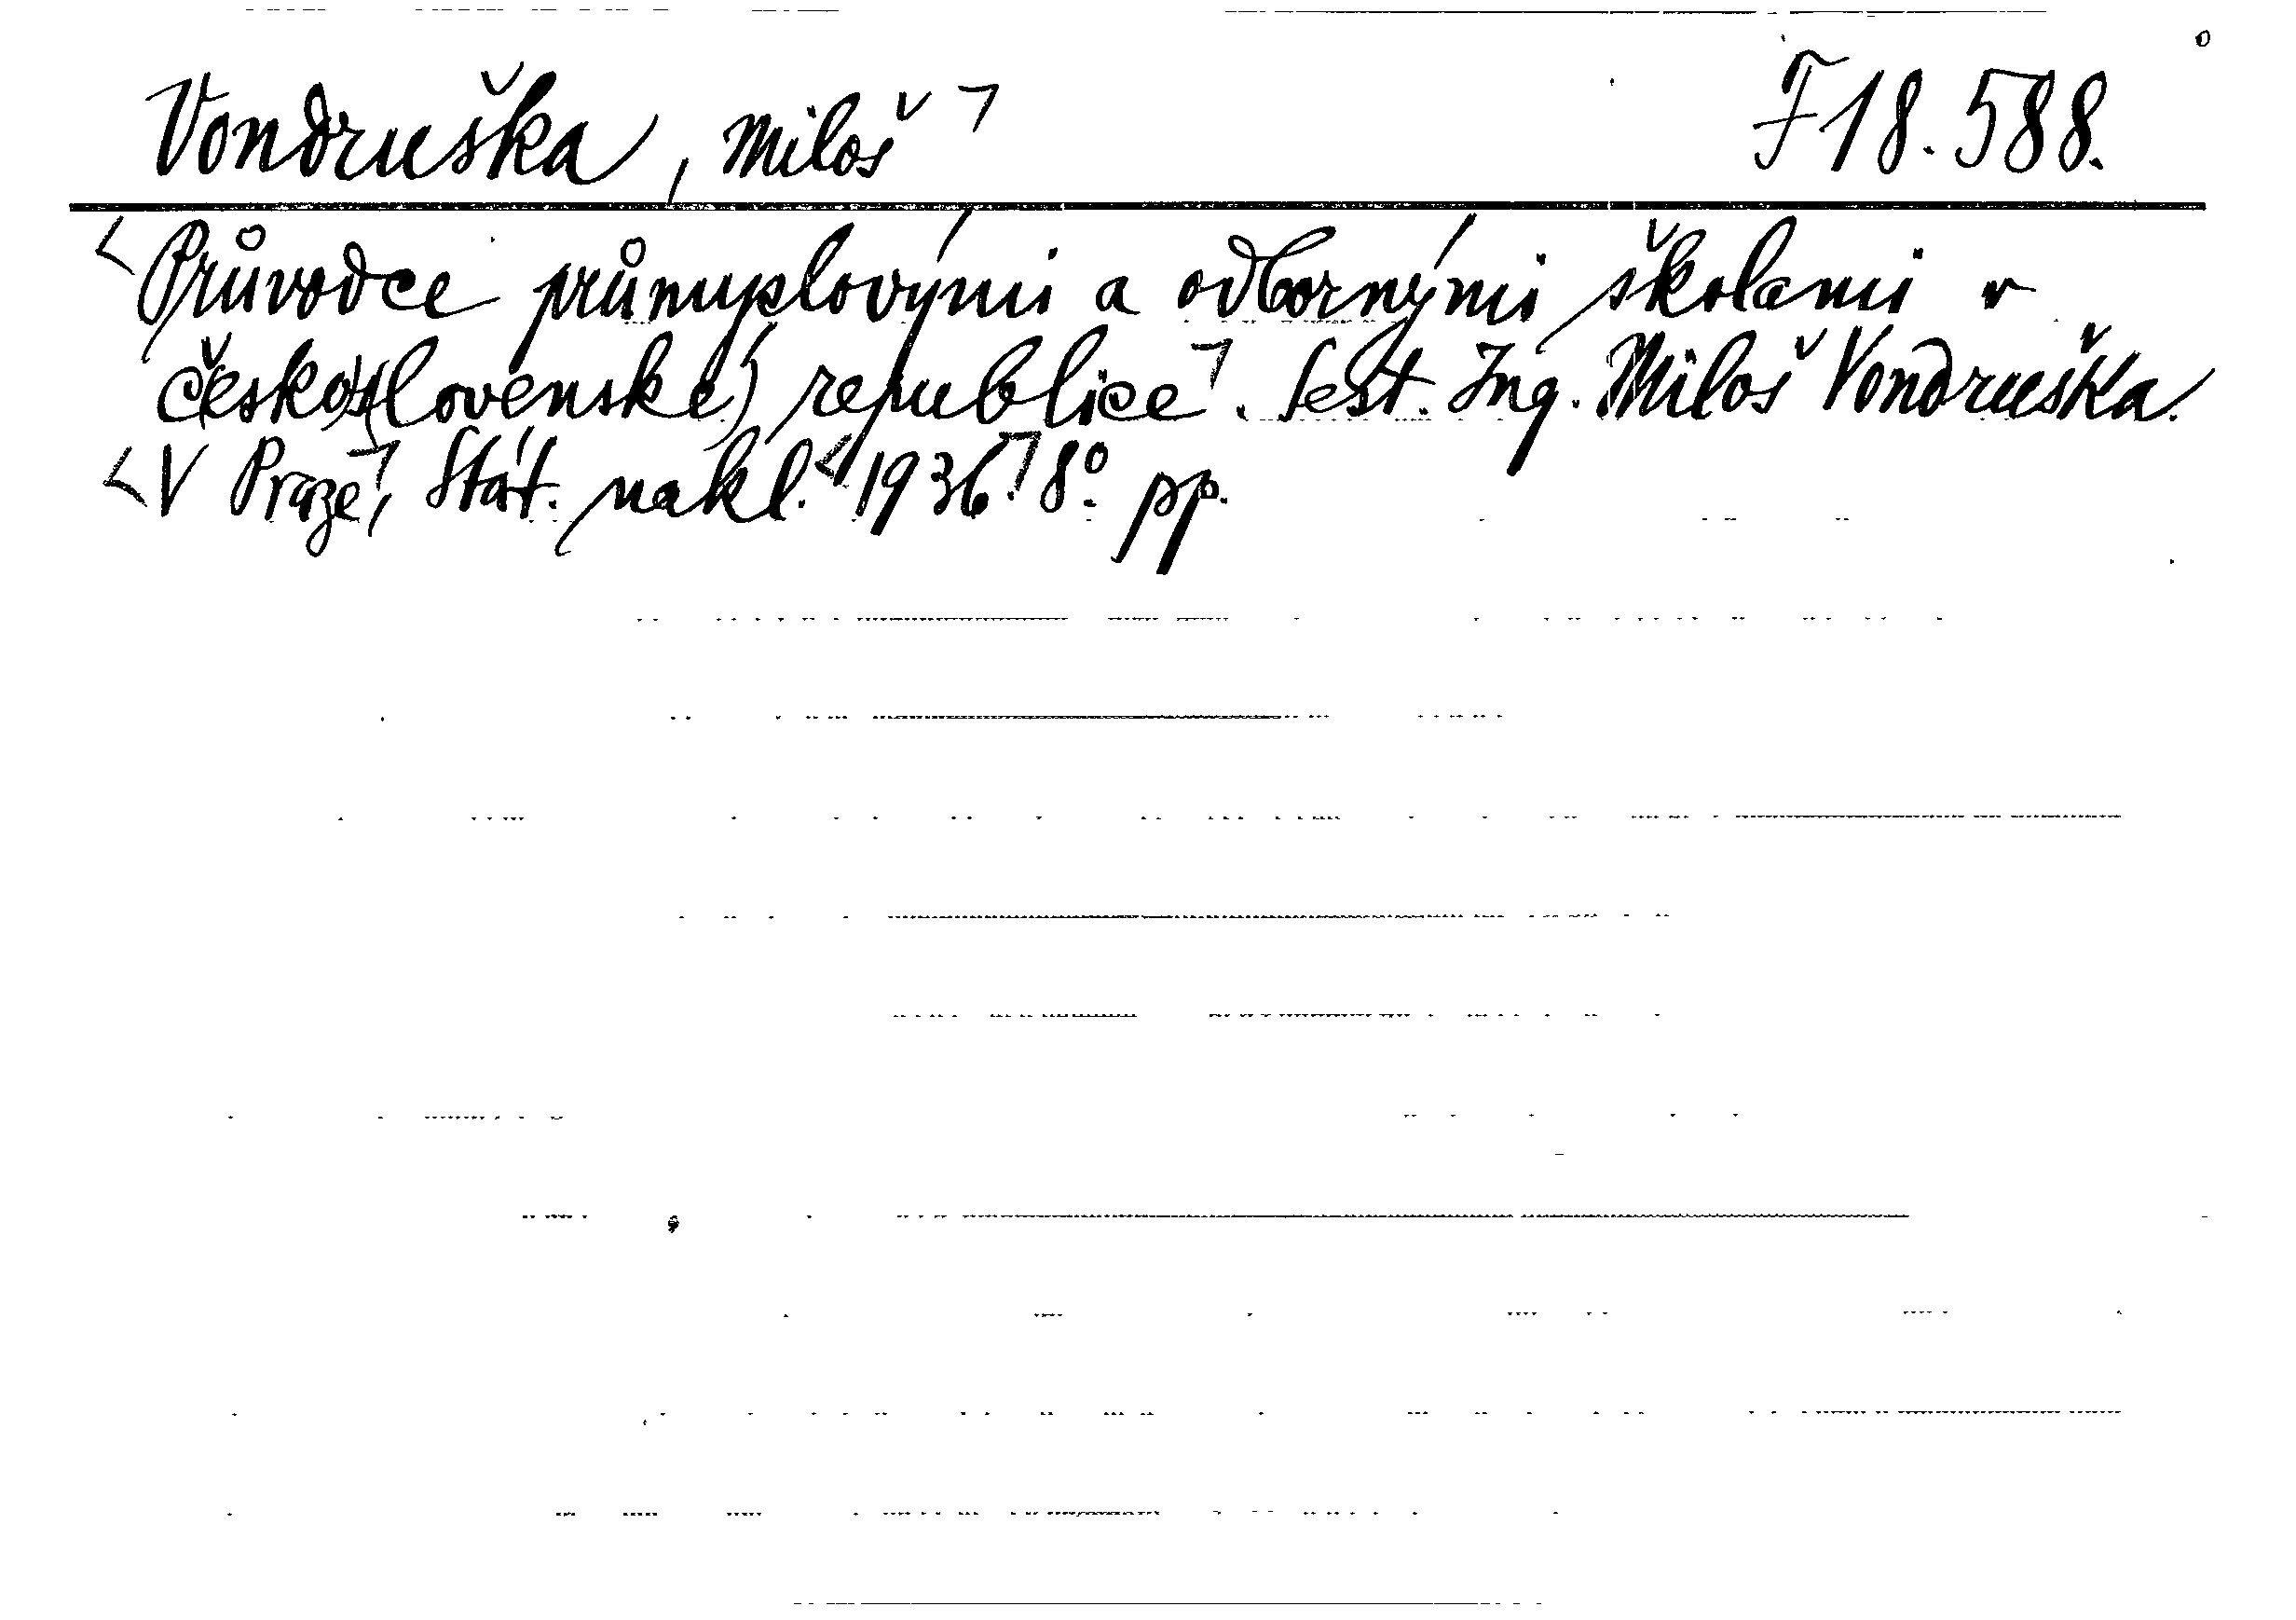 Vondruška, Miloš ⌉ F 18.588.
<Průvodce průmyslovými a odbornými školami v
česko(slovenské) republice⌉. Sest. Ing. Miloš Vondruška.
<V Praze⌉, Stát. nakl. <1936.⌉ 8° pp.